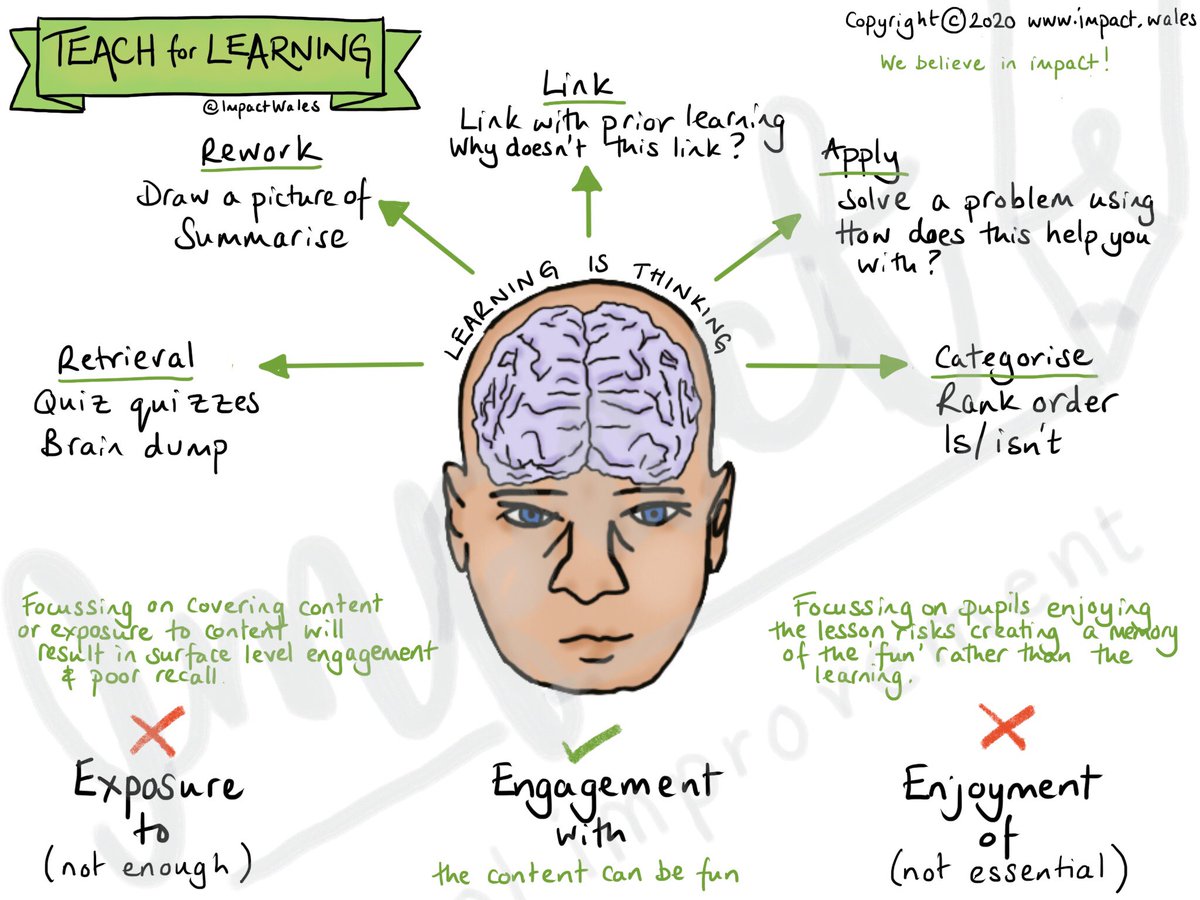 TEACH for LEARNING
@ImpactWales
Copyright © 2020 www.impact.wales
We believe in impact!
Link
Link with prior learning
Why doesn't this link?
Rework
Draw a picture of
Summarise
Apply
Solve a problem using
How does this help you
with?
LEARNING IS THINKING
Retrieval
Quiz quizzes
Brain dump
Categorise
Rank order
Is/isn't
Focussing on covering content
or exposure to content will
result in surface level engagement
& poor recall.
Focussing on pupils enjoying
the lesson risks creating a memory
of the 'fun' rather than the
learning.
Exposure
to
(not enough)
Engagement
with
the content can be fun
Enjoyment
of
(not essential)
improvement